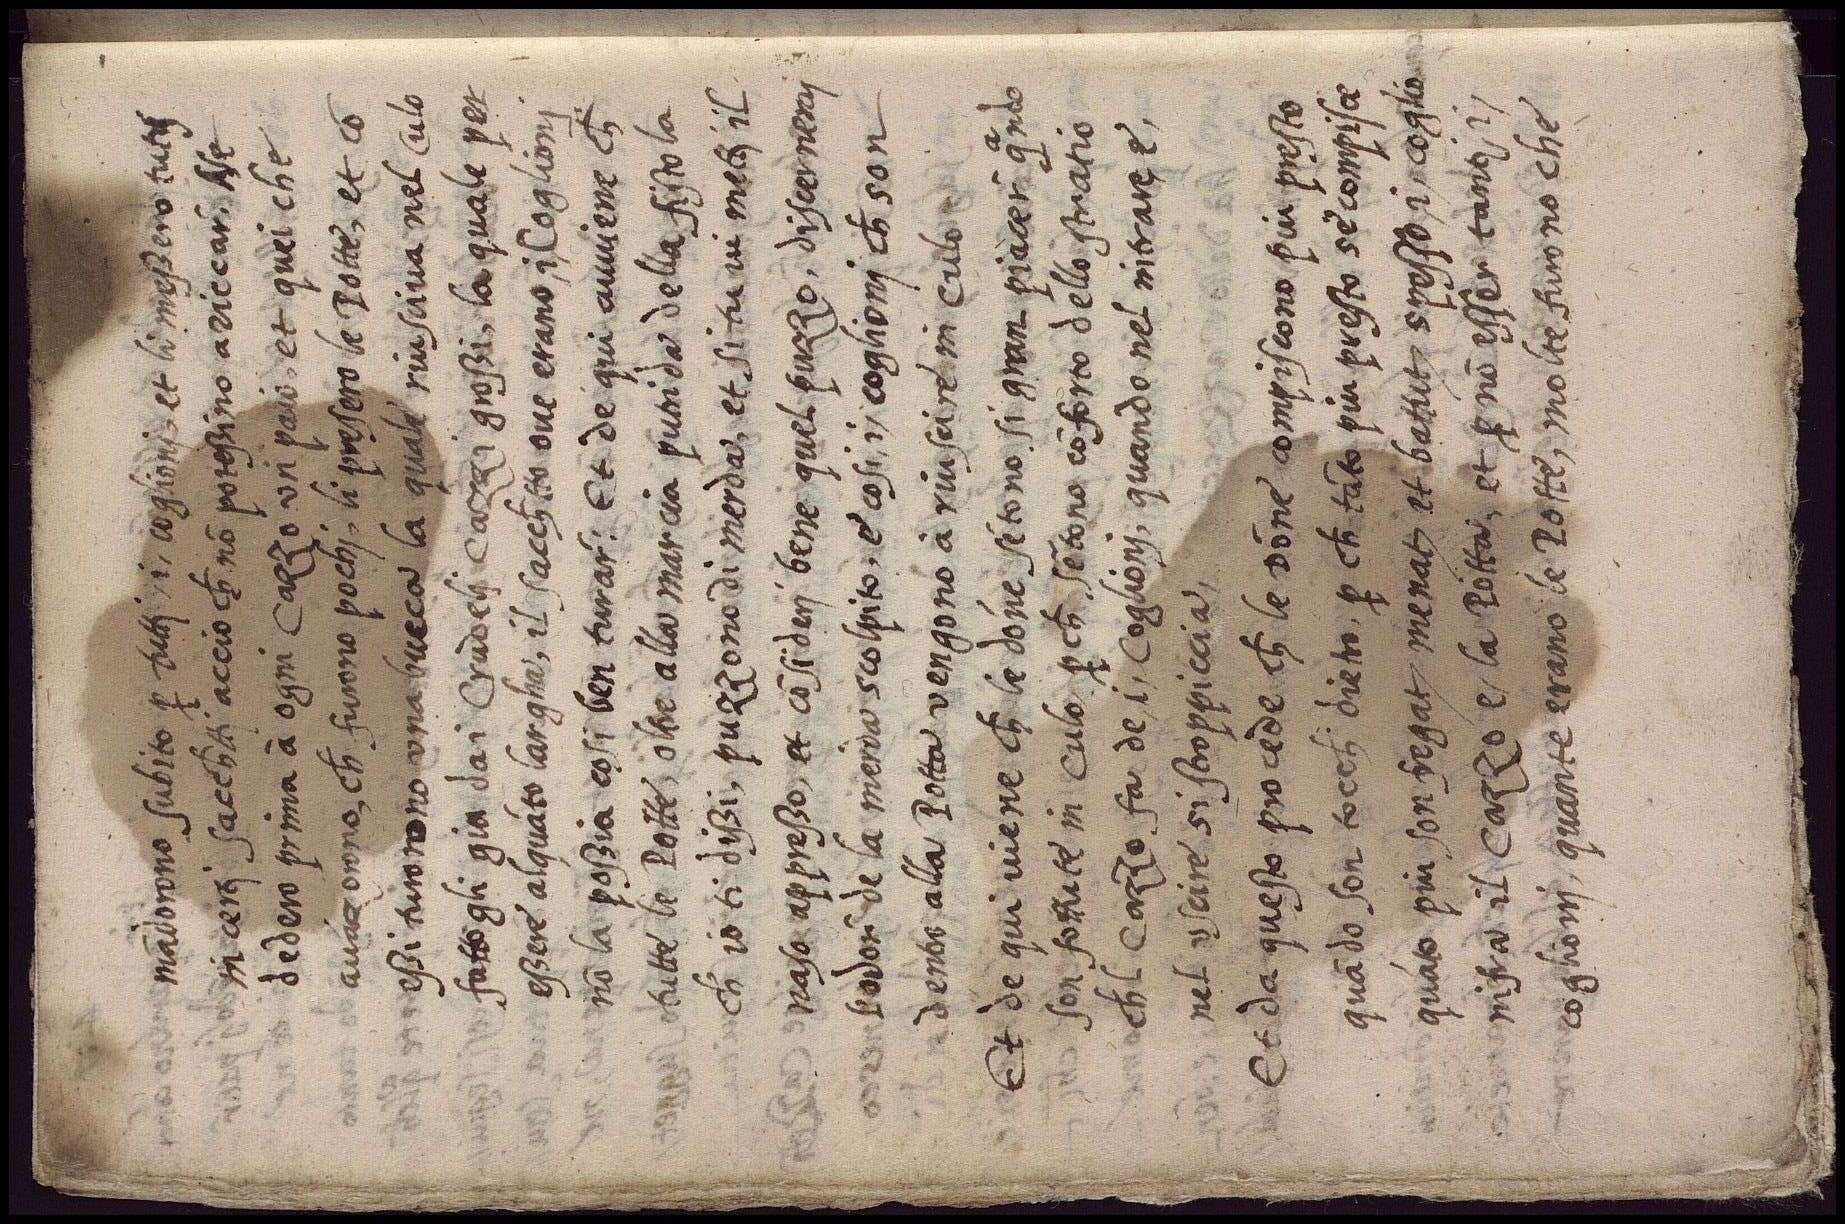 mādorono subito ꝑ tutti i, coglioni, et li meßero tutti
in certi sacchti accio ch̄ nō poteßino azzuccar, hse
dedero prima à ogni Cazzo un paio, et quei che
auāzorono, ch̄ furono pochi, li presero le Potte, et co
eßi turorono una bucca la quale riusciua nel Culo
fattogli gia dai Crudeli Cazzi großi, la quale per
eßere alquāto largha, il sacchtto oue erano, i Coglionj
nō la poßia cosi ben turar: Et de qui auuiene ch̄
tutte le Potte, oltre alla marcia putida della fistola
ch̄ io ti dißi, puzzono di merda, et si tu ui metti il
naso appreßo, et cōsiderj bene quel puzzo, discernerai
l'odor de la merda scolpito, e cosi, i coglionj ch̄ son
dentro alla Potta vengono à riuscire in Culo
Et de qui uiene ch̄ le dōne sētono si gran piacer qando
son fottute in Culo, ꝑch̄ sētono cōforto dello stratio
chl Cazzo fa de, i, Coglionj, quando nel nitrare e,
nel uscire si stoppiccia,
Et da questo procede ch̄ le dōne compiscono piu presto
quādo son tocchi dietro, ꝑ ch̄ tāto piu presto se compisce
quāto piu son fregati menati et battuti spesso, i, coglio
nistra il Cazzo e, la Potta, et ꝑ nō esser tanti, i,
coglionj, quante erano le Potte, molte furono che